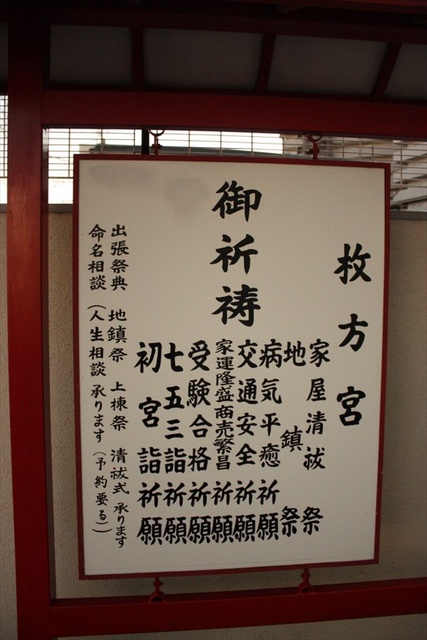 枚方宮
御祈祷
家屋清祓祭
地鎮祭
病気平癒祈願
交通安全祈願
家運隆盛商売繁昌祈願
受験合格祈願
七五三詣祈願
初宮詣祈願
出張祭典 地鎮祭 上棟祭 清祓式 承ります
命名相談 (人生相談 承ります (予約要る))